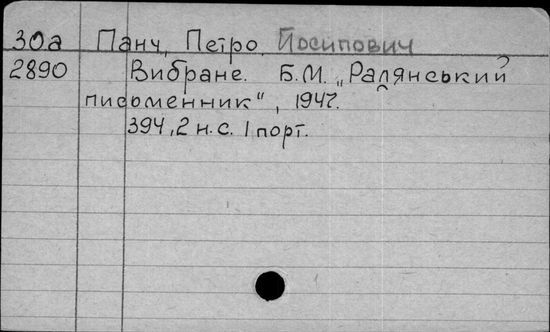 30а Панч, Петро Йосипович
2890 Вибране. Б.М. „Радянський
письменник", 1947.
394, 2 н.с. 1 порт.